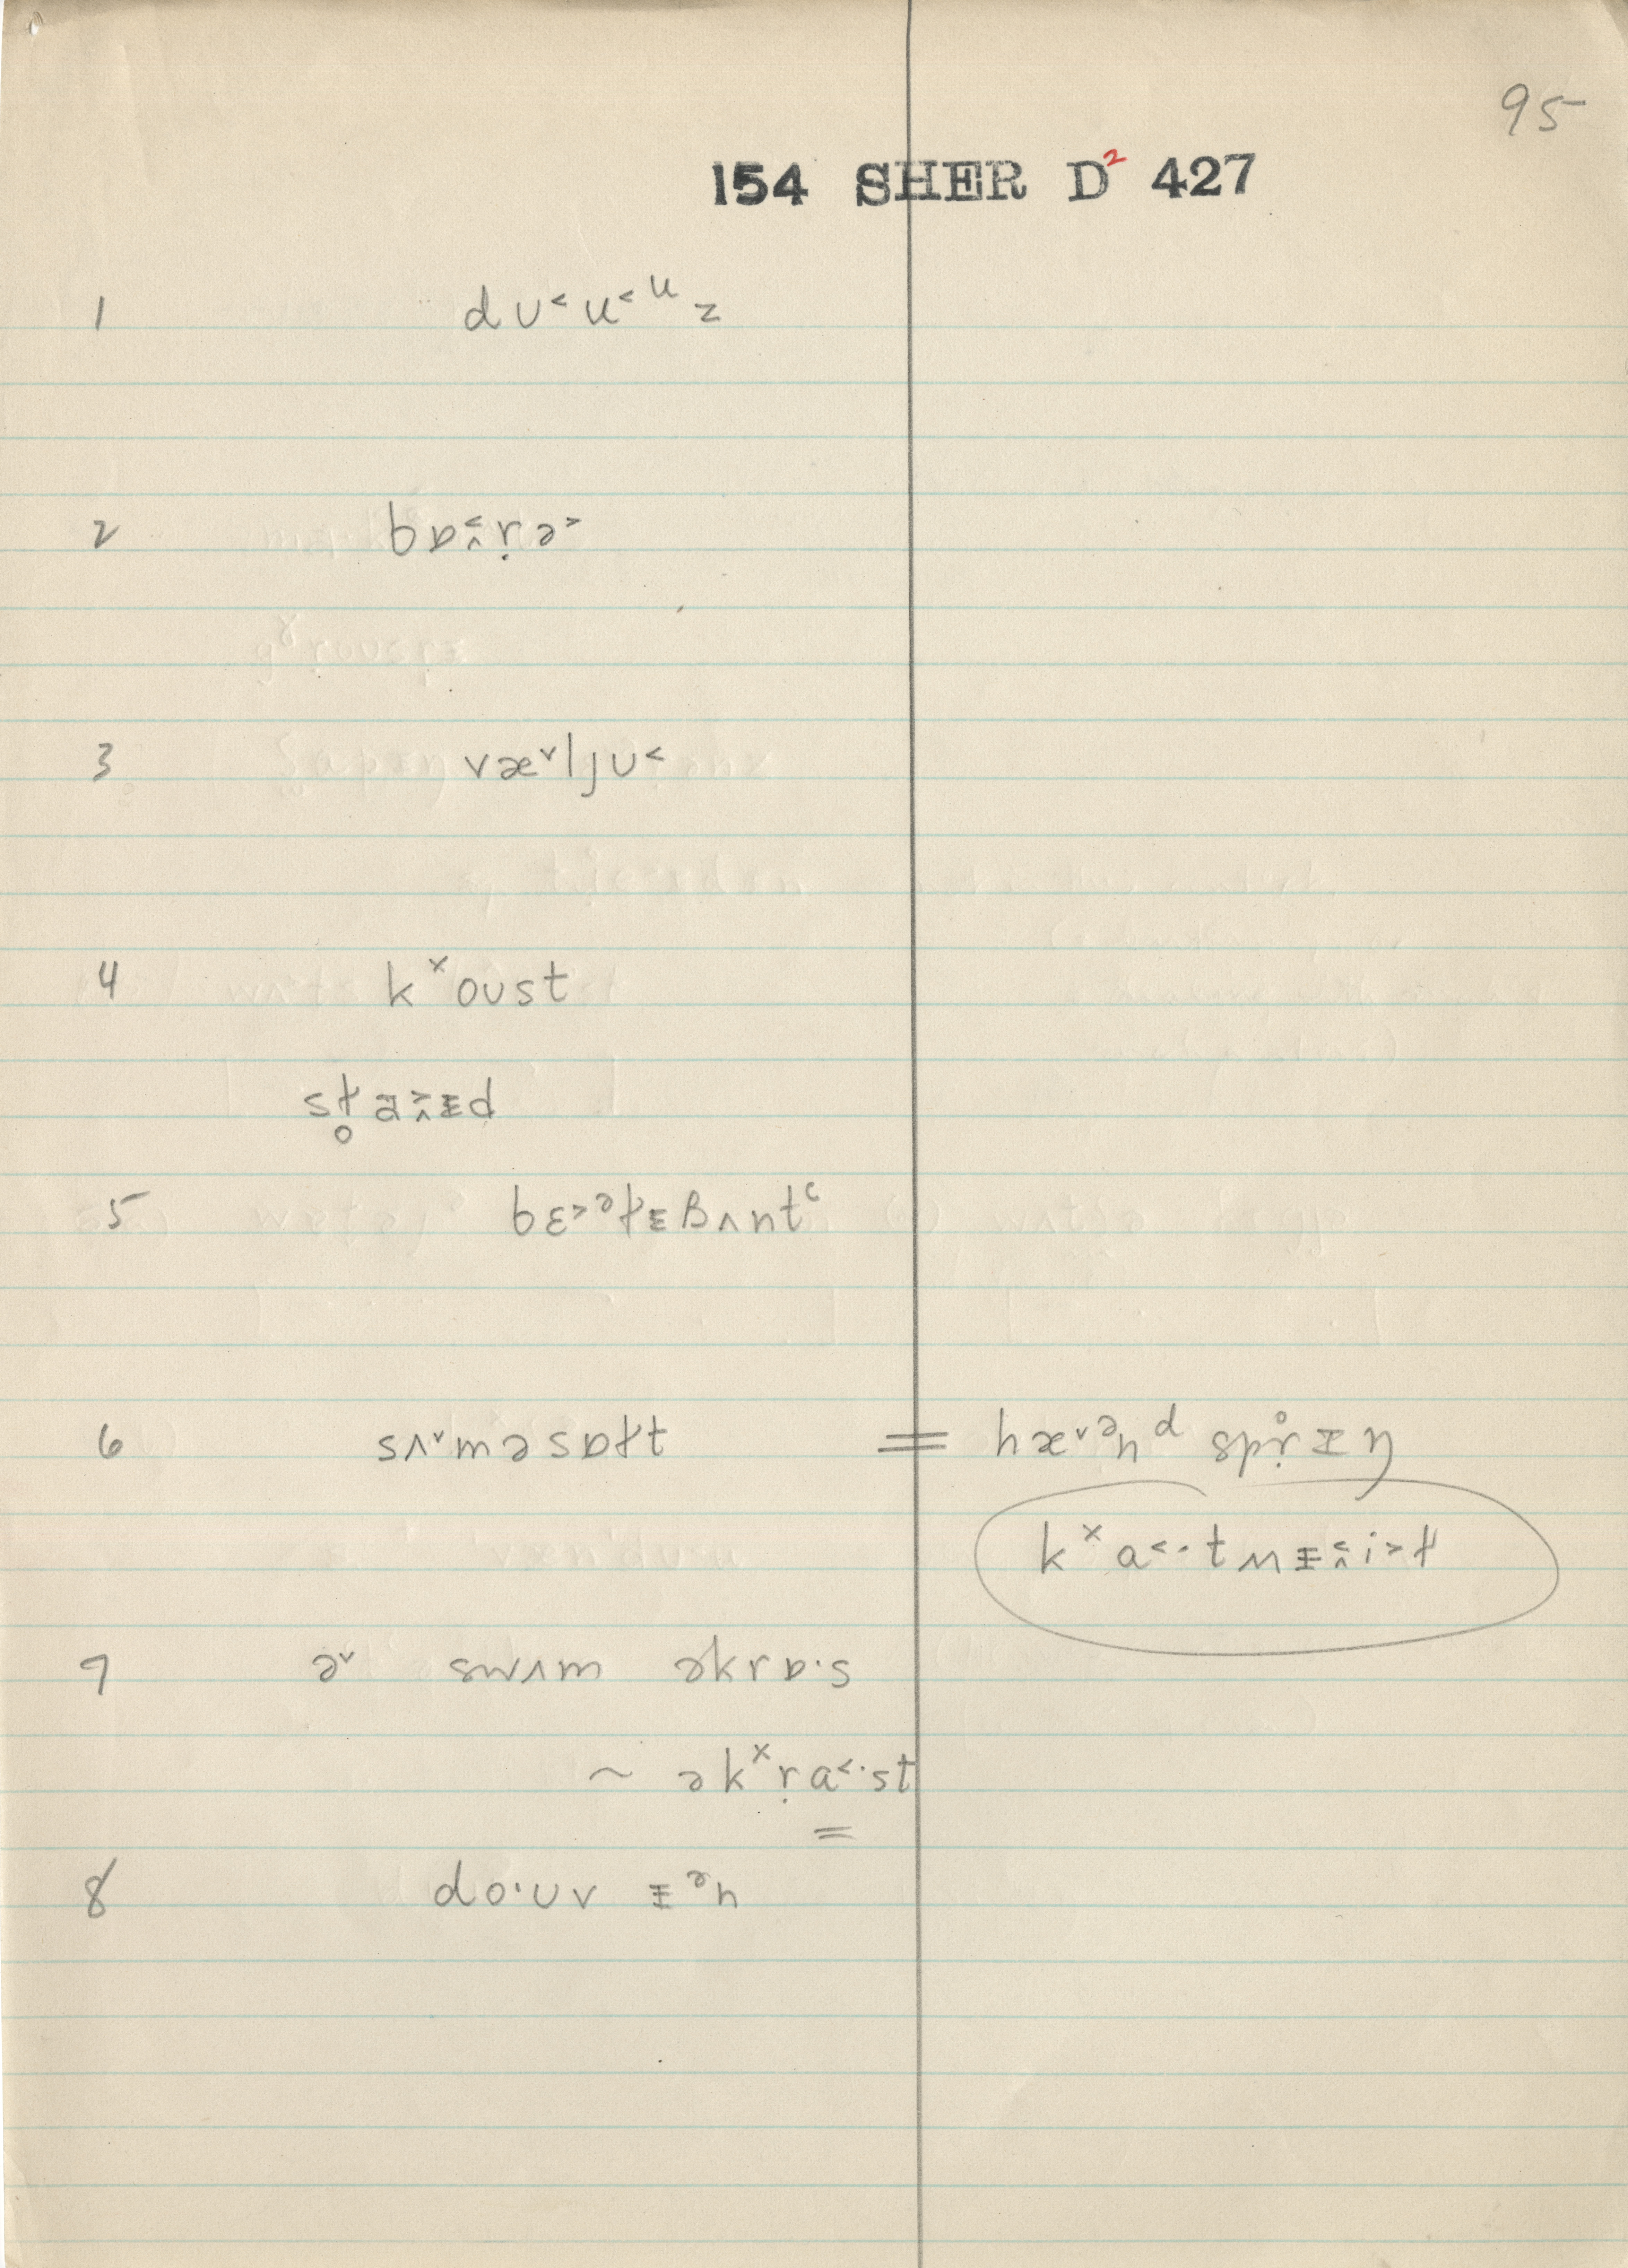 95
154 SHER D² 427
1 dʊ˂u˂ᵘz
2 bɒ˂˰ṛə˃
3 væ˅ljʊ˂
4 kˣoʊst
sɫ̥a˃˰ᵻd
5 bɛ˃ᵊɫᵻβʌntʿ
6 sʌ˅məsɒɫt = hæ˅ᵊnᵈ spṛ̊ɪŋ
kˣɑ˂·tʍᵻ˂˰i˃ɫ
7 ə˅ swʌm əkrɒ·s
~ əkˣṛɑ˂·st
=
8 do·ʊv ᵻᵊn